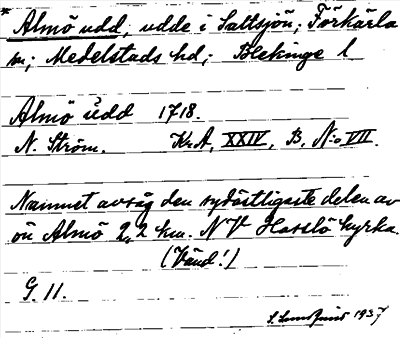 * Almö udd, udde i Saltsjön; Förkärla
sn; Medelstads hd; Blekinge l
Almö udd 1718.
N. Ström. Kr.A, XXIV, B, N:o VII.
Namnet avsåg den sydöstligaste delen av
ön Almö 2,2 km. NV Hasslö kyrka.
(Vänd!)
G. 11.
S. Lundquist 1937